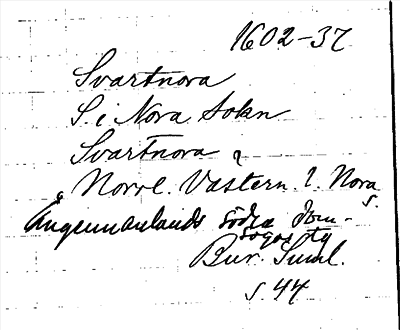 1602-37
Svartnora
S. i Nora Sokn
Svartnora
Norrl. Västern. l. Nora
s.
Ångermanlands södra dom-
sagas
Bur. Suml.
s. 44